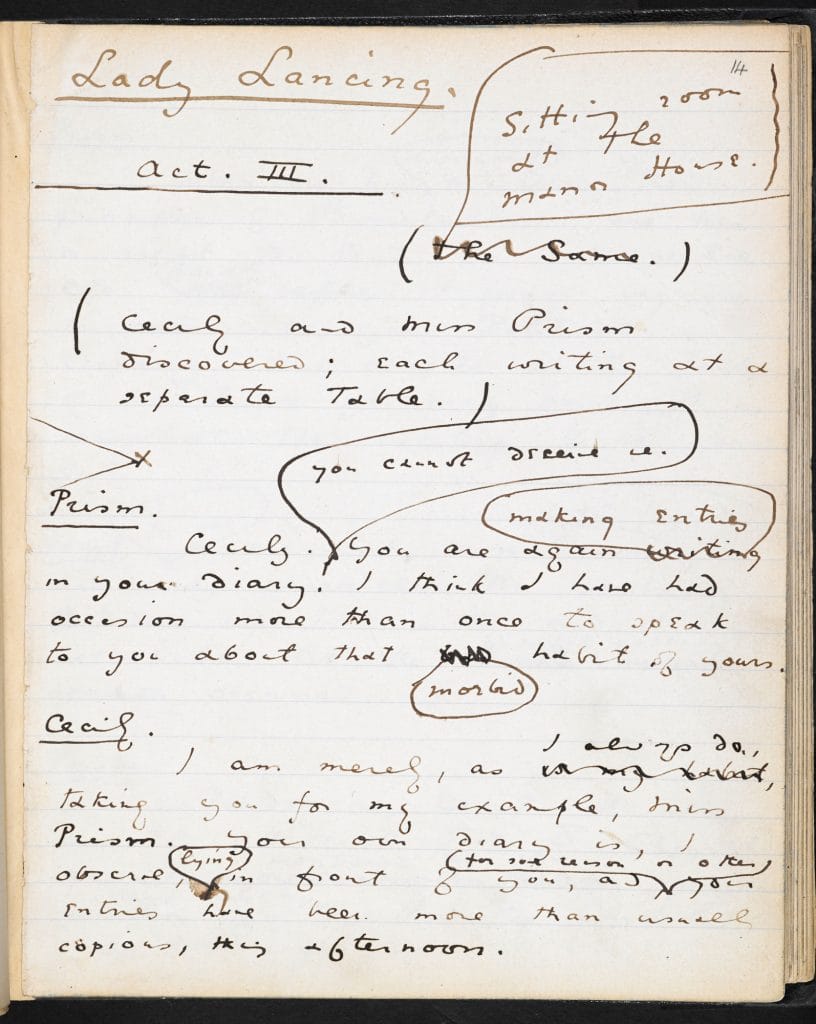 14
Lady Lancing.
Sitting room
at the
manor House.
Act. III.
(the Same.)
(Cecily and Miss Prism
discovered; each writing at a
separate Table.)
you cannot deceive me.
Prism.
making Entries
Cecily. You are again writing
in your diary! I think I have had
occasion more than once to speak
to you about that habit of yours.
morbid
Cecily.
I always do,
I am merely, as is my habit,
taking you for my example, Miss
Prism. Your own diary is, I
lying
(for some reason, or other,)
observe, in front of you, and your
Entries have been more than usually
copious, this afternoon.